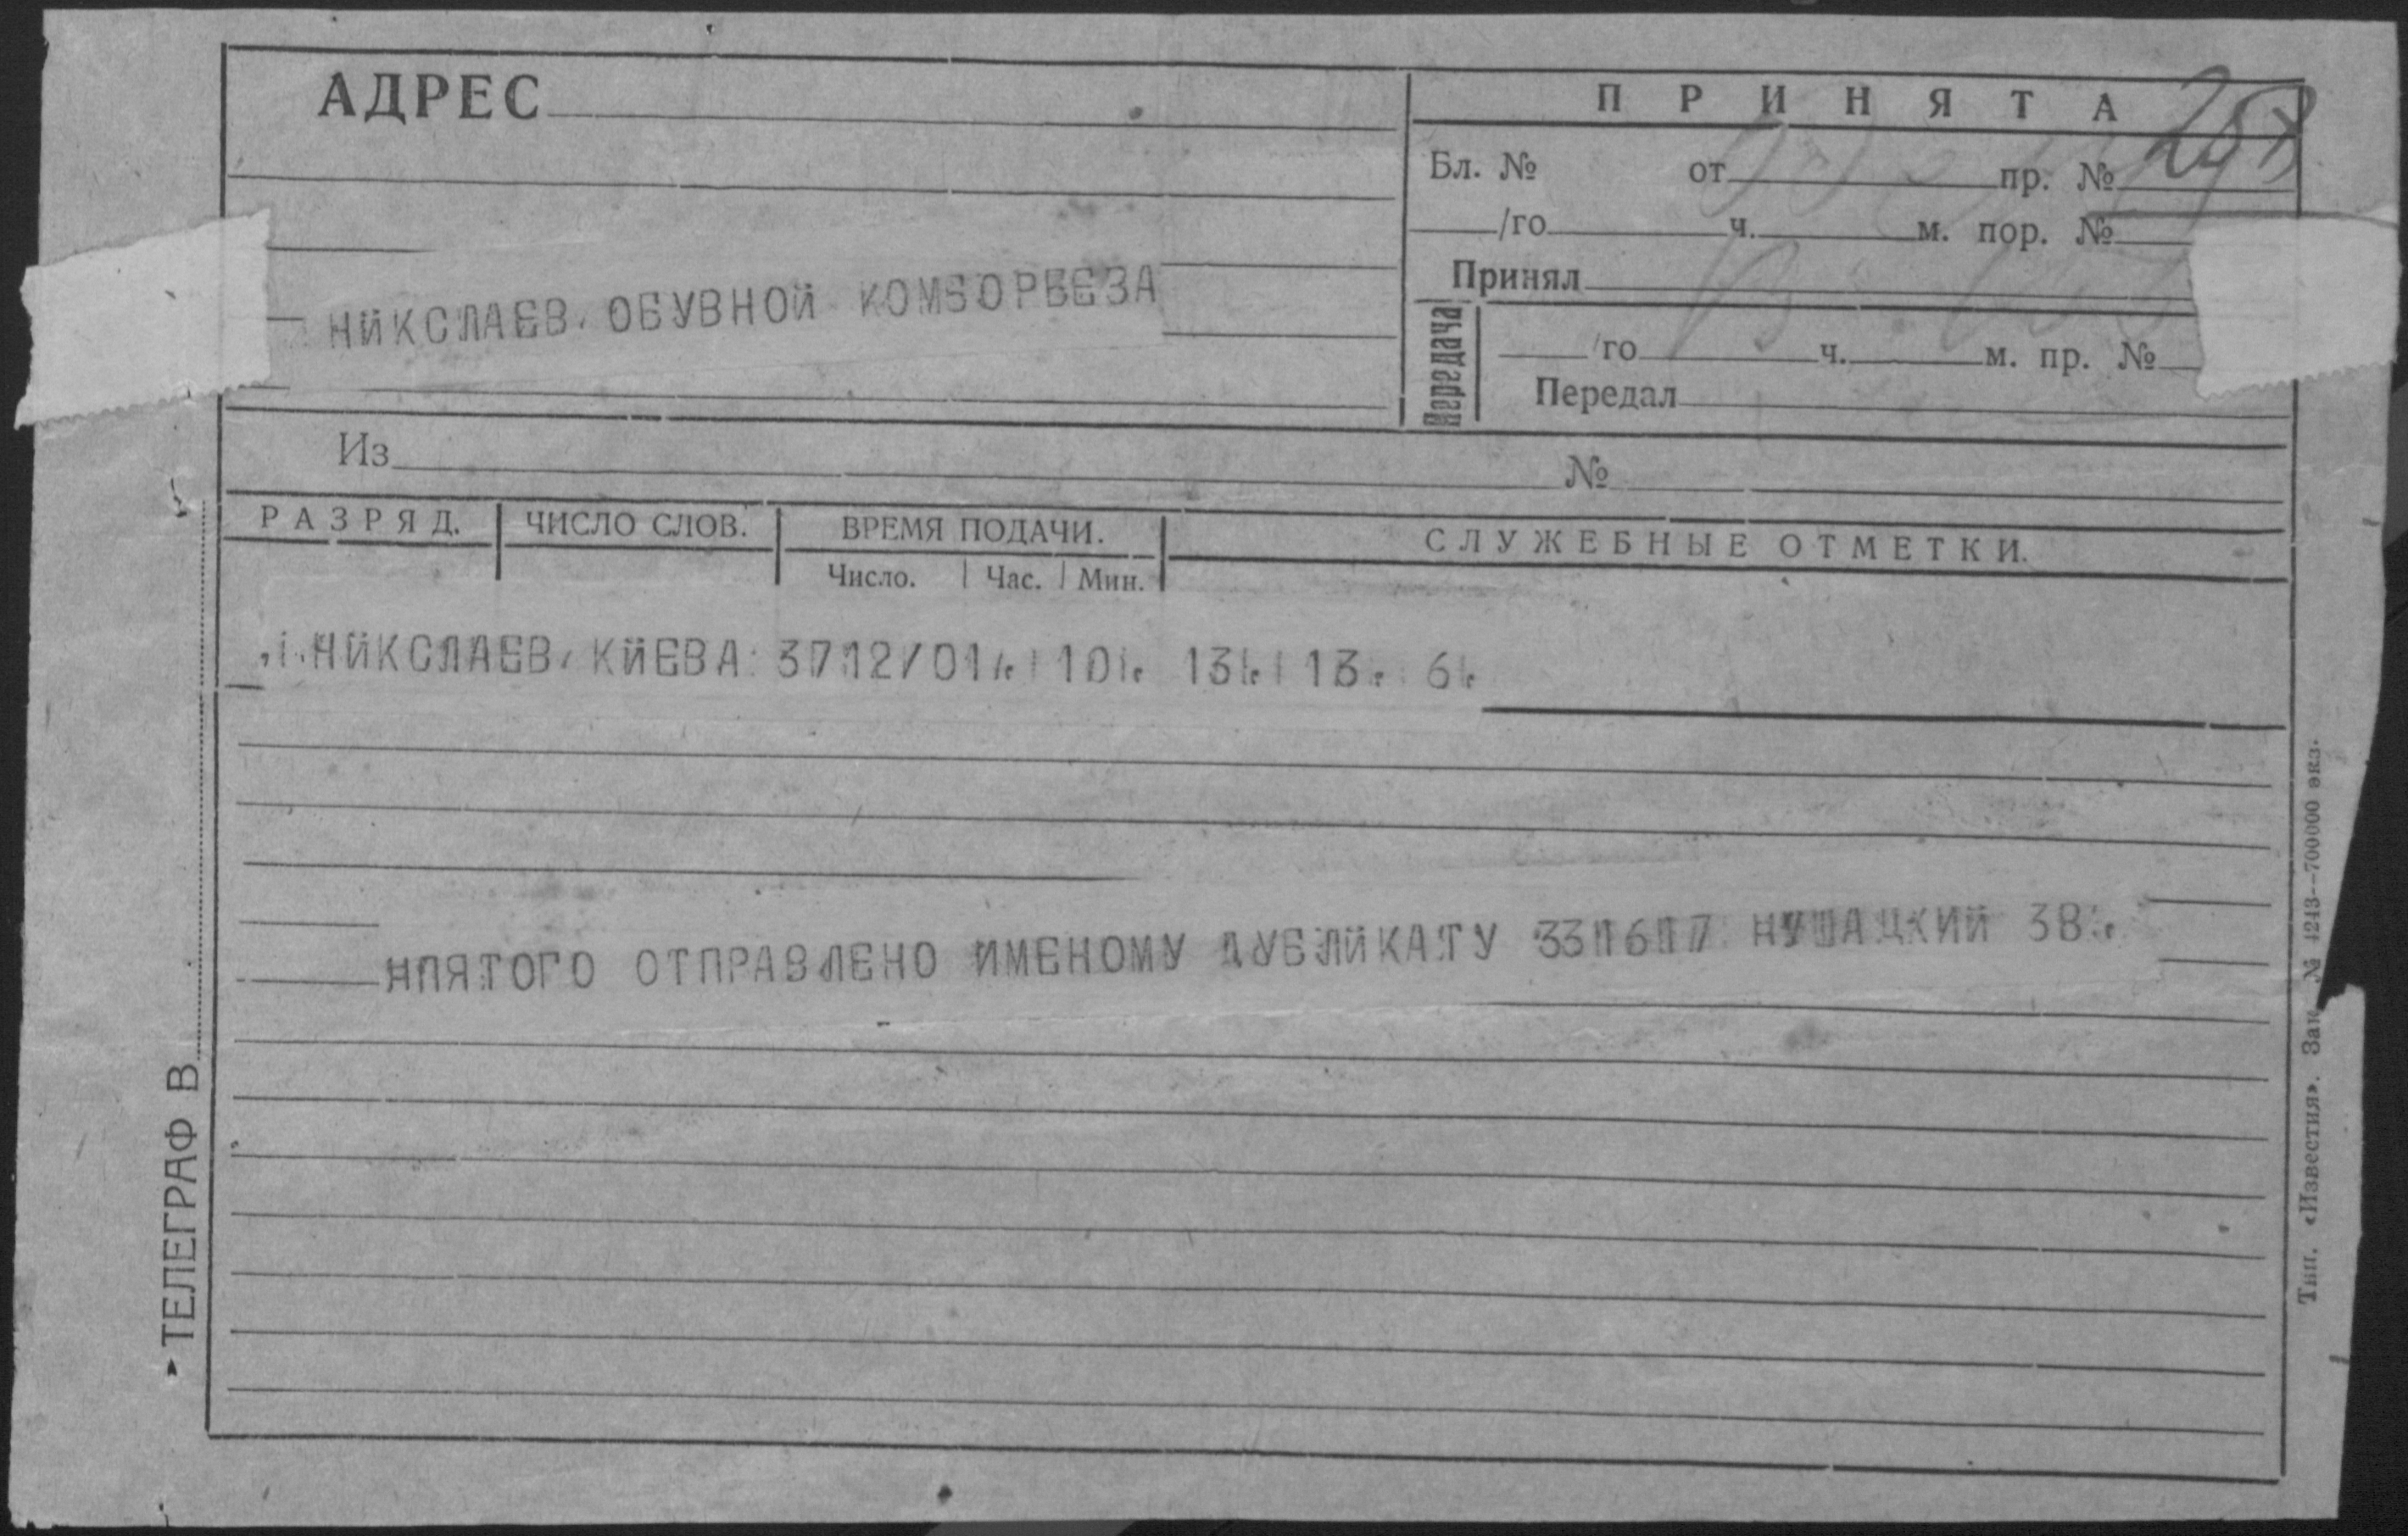 АДРЕС
ПРИНЯТА
Бл. № от пр. №
/го ч. м. пор. №
Принял
НИКСЛАЕВ. ОБУВНОЙ КОМБОРБЕЗА
Передача
/го ч. м. пр. №
Передал
Из №
РАЗРЯД. ЧИСЛО СЛОВ. ВРЕМЯ ПОДАЧИ. СЛУЖЕБНЫЕ ОТМЕТКИ.
Число. Час. Мин.
НИКСЛАЕВ, КИЕВА 3712/01 10 13 13 6
НПЯТОГО ОТПРАВЛЕНО ИМЕНОМУ ДУБЛИКАТУ НУШАЦКИЙ 38
ТЕЛЕГРАФ В
Тип. «Известия». Зак. № 4243—700000 экз.